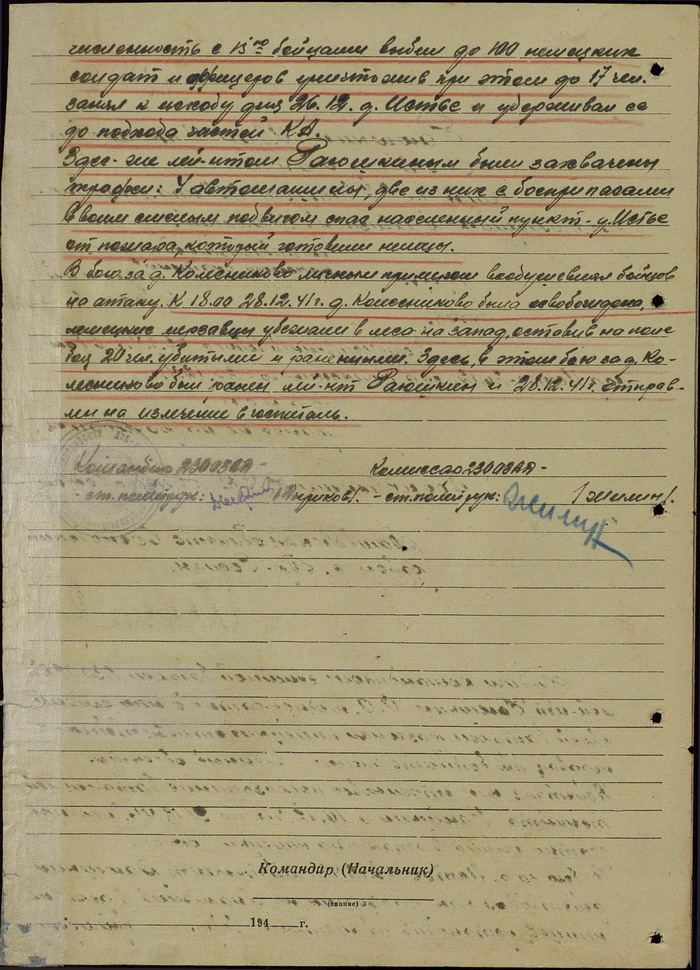 численность с 15ю бойцами выбил до 100 немецких
солдат и офицеров уничтожив при этом до 17 чел.
занял к исходу дня 26.12. д. Истье и удерживал ее
до подхода частей КА.
Здесь-же лей-нтом были захвачены
трофеи: 4 автомашины, две из них с боеприпасами
своим смелым подвигом спас населенный пункт - д. Истье
от пожара, который готовили немцы.
В бою за д. Колесниково личным примером воодушевлял бойцов
на атаку. К 18.00 28.12.41 г. д. Колесниково была освобождена,
немецкие мерзавцы убежали в леса на запад, оставив на поле
20 чел. убитыми и ранеными. Здесь, в этом бою за д. Ко-
лесниково был ранен лей-нт и 28.12.41 г. отправ-
лен на излечение в госпиталь.
Командир
Комиссар
- ст. политрук:
- ст. политрук: /Жилин/.
Командир (Начальник)
(звание)
194 г.